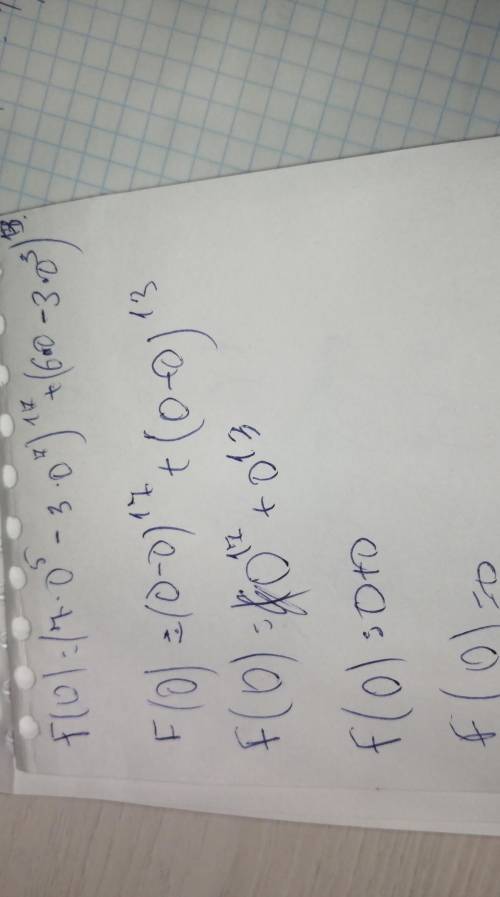 F(0)=(7·0⁵-3·0⁷)¹⁷+(6·0-3·0³)¹³
F(0)=(0-0)¹⁷+(0-0)¹³
F(0)=0¹⁷+0¹³
F(0)=0+0
F(0)=0